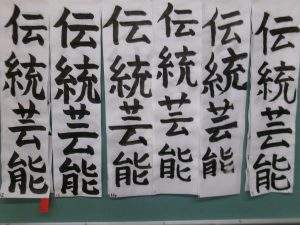 伝統芸能
伝統芸能
伝統芸能
伝統芸能
伝統芸能
伝統芸能